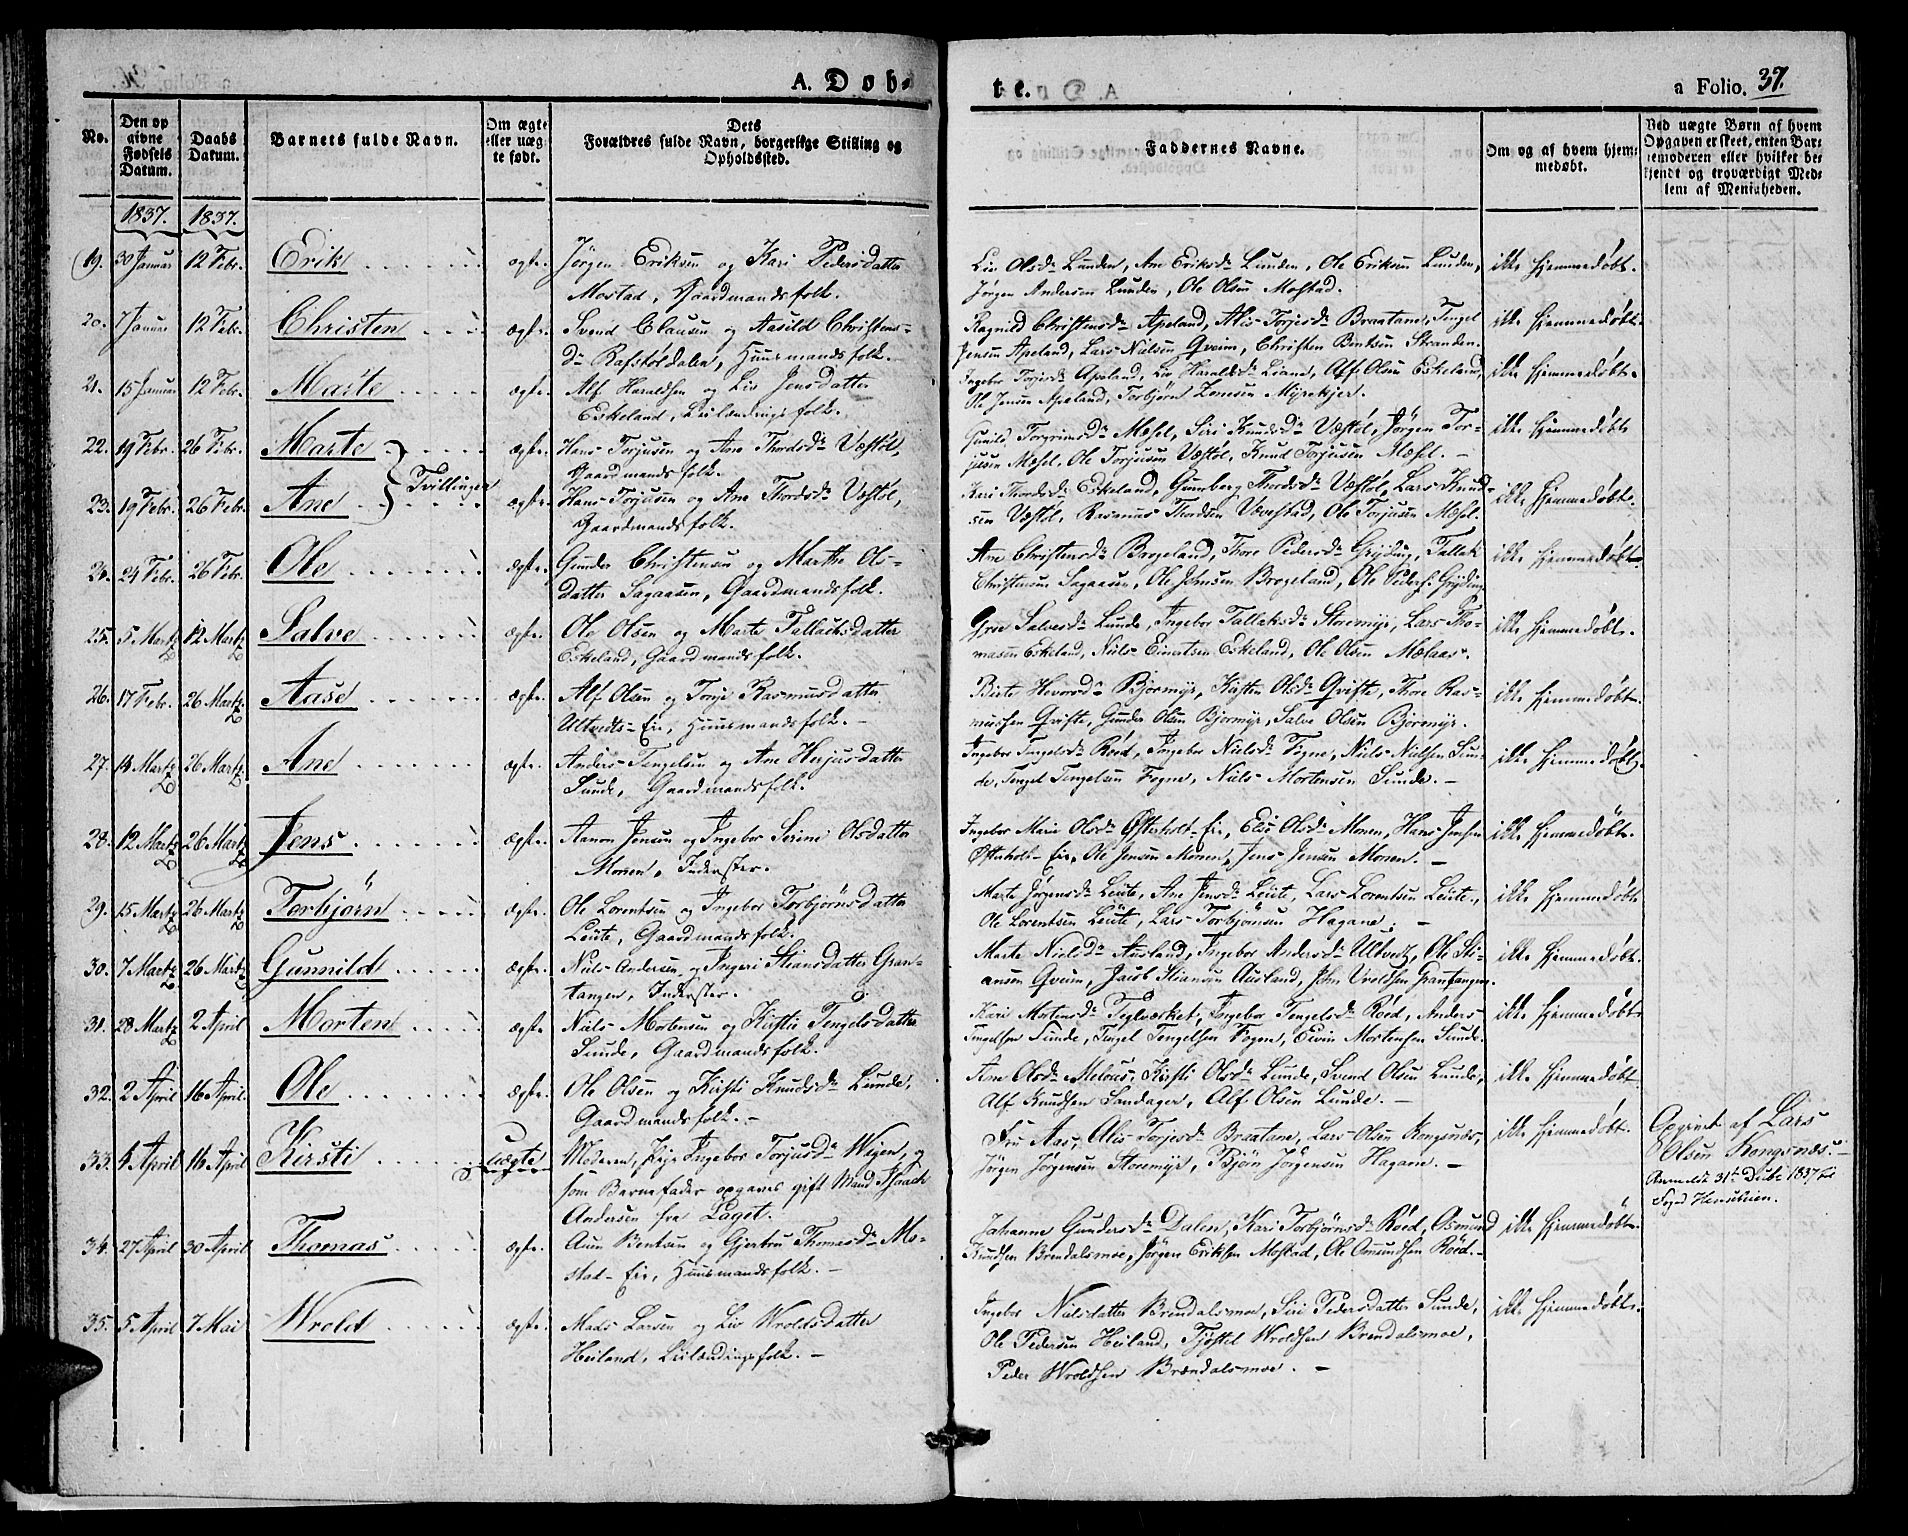 A. Døb-
te.
a Folio. 37.
No.
Den op
givne
Fødsels
Datum.
Daabs
Datum.
Barnets fulde Navn.
Om ægte
eller uæg
te født.
Dets
Forældres fulde Navn, borgerlige Stilling og
Opholdssted.
Faddernes Navne.
Om og af hvem hjem-
medøbt.
Ved uægte Børn af hvem
Opgaven er skeet, enten Bar-
nemoderen eller hvilket be-
kjendt og troværdigt Med-
lem af Menigheden.
1837. 1837.
19. 30 Januar 12 Febr. Erik ægte. Jørgen Eriksen og Kari Pedersdatter
Mostad, Gaardmandsfolk.
Liv Olsdr Lunden, Ane Eriksdr Lunden, Ole Eriksen Lunden,
Jørgen Andersen Lunden, Ole Olsen Mostad.
ikke hjemmedøbt.
20. 7 Januar 12 Febr. Christen ægte. Svend Clausen og Aasild Christens-
dr Rafstøldalen, Huusmandsfolk.
Ragnild Christensdr Apeland, Alis Torjesdr Braatane, Tengel
Jensen Apeland, Lars Nielsen Qveim, Christen Bentsen Stranden.
ikke hjemmedøbt.
21. 15 Januar 12 Febr. Marte ægte. Alf Haraldsen og Liv Jensdatter
Eskeland, Leilændingsfolk.
Ingebor Torjesdr Apeland, Liv Haraldsdr Leiane, Alf Olsen Eskeland,
Ole Jensen Apeland, Torbjørn Myrekjer.
ikke hjemmedøbt.
22. 19 Febr. 26 Febr. Marte ægte. Hans Torjusen og Ane Thordsdr Væstøl,
Gaardmandsfolk.
Gunild Torgrimsdr Mæsel, Siri Knudsdr Væstøl, Jørgen Tor-
jusen Mæsel, Ole Torjusen Væstøl, Knud Torjusen Mæsel.
ikke hjemmedøbt
Tvillinger
23. 19 Febr. 26 Febr. Ane ægte. Hans Torjusen og Ane Thordsdr Væstøl,
Gaardmandsfolk.
Kari Thordsdr Eskeland, Gunberg Thordsdr Væstøl, Lars Knud-
sen Væstøl, Rasmus Thordsen Uvestad, Ole Torjusen Mæsel.
ikke hjemmedøbt.
24. 24 Febr. 26 Febr. Ole ægte. Gunder Christensen og Marthe Ols-
datter Sagaasen, Gaardmandsfolk.
Ane Christensdr Brogeland, Thore Pedersdr Gryting, Tallak
Christensen Sagaasen, Ole Jensen Brogeland, Ole Peders. Gryting
ikke hjemmedøbt.
25. 5 Martz 12 Martz Salve ægte. Ole Olsen og Marte Tallaksdatter
Eskeland, Gaardmandsfolk.
Groe Salvesdr Lunde, Ingebor Tallaksdr Storemyr, Lars Tho-
masen Eskeland, Niels Einertsen Eskeland, Ole Olsen Mælaas.
ikke hjemmedøbt.
26. 17 Febr. 26 Martz Aase ægte. Alf Olsen og Tonje Rasmusdatter
Ultvedts-Eie, Huusmandsfolk.
Birte Hovorsdr Bjormyr, Kirsten Olsdr Qviste, Thore Ras-
mussen Qviste, Gunder Olsen Bjormyr, Salve Olsen Bjormyr.
ikke hjemmedøbt.
27. 14 Martz 26 Martz Ane ægte. Anders Tengelsen og Ane Herjusdatter
Sunde, Gaardmandsfolk.
Ingebor Tengelsdr Røed, Ingebor Nielsdr Fogne, Niels Nielsen Sun-
de, Tengel Tengelsen Fogne, Niels Mortensen Sunde.
ikke hjemmedøbt.
28. 12 Martz 26 Martz Jens ægte. Aanon Jensen og Ingebor Serine Olsdatter
Monen, Inderster.
Ingebor Marie Olsdr Østerholt-Eie, Elie Olsdr Monen, Hans Jensen
Østerholt-Eie, Ole Jensen Monen, Jens Jensen Monen.
ikke hjemmedøbt.
29. 15 Martz 26 Martz Torbjørn ægte. Ole Lorentsen og Ingebor Torbjørnsdatter
Leite, Gaardmandsfolk.
Marte Jørgensdr Leite, Ane Jensdr Leite, Lars Lorentsen Leite,
Ole Lorentsen Leite, Lars Torbjørnsen Hagane.
ikke hjemmedøbt
30. 7 Martz 26 Martz Gunnild ægte. Niels Andersen og Ingeri Stiansdatter Gran-
tangen, Inderster.
Marte Nielsdr Ausland, Ingebor Andersdr Ultvedt, Ole Sti-
ansen Qveim, Jacob Stiansen Ausland, John Uroldsen Grantangen.
ikke hjemmedøbt.
31. 28 Martz 2 April Morten ægte. Niels Mortensen og Kirstie Tengelsdatter
Sunde, Gaardmandsfolk.
Kari Mortensdr Teglværket, Ingebor Tengelsdr Røed, Anders
Tengelsen Sunde, Tengel Tengelsen Fogen, Eivin Mortensen Sunde.
ikke hjemmedøbt
32. 2 April 16 April Ole ægte. Ole Olsen og Kirsti Knudsdr Lunde,
Gaardmandsfolk.
Ane Olsdr Melaas, Kirsti Olsdr Lunde, Svend Olsen Lunde,
Alf Knudsen Sandager, Alf Olsen Lunde.
ikke hjemmedøbt.
33. 4 April 16 April Kirsti uægte Moderen, Pige Ingebor Torjusdr Wigen, og
som Barnefader opgaves gift Mand Isaach
Andersen fra Laget.
Fru Aas, Alis Torjesdr Braatane, Lars Olsen Kongsnæs,
Jørgen Jørgensen Storemyr, Bjørn Jørgensen Hagane.
ikke hjemmedøbt.
Opgivet af Lars
Olsen Kongsnæs.
Anmeldt 31te Decbr 1837 for
34. 27 April 30 April Thomas ægte. Aven Bentsen og Gjertru Thomesdr Mo-
stad-Eie, Huusmandsfolk.
Johanne Gundersdr Dalen, Kari Torbjørnsdr Røed, Osmund
Knudsen Brendalsmoe, Jørgen Eriksen Mostad, Ole Omundsen Røed.
ikke hjemmedøbt.
35. 5 April 7 Mai Wrold ægte. Mads Larsen og Liv Wroldsdatter
Heiland, Leilændingsfolk.
Ingebor Nielsdatter Brendalsmoe, Siri Pedersdatter Sunde,
Ole Pedersen Heiland, Tjøstel Wroldsen Brendalsmoe,
Peder Wroldsen Brændalsmoe.
ikke hjemmedøbt.